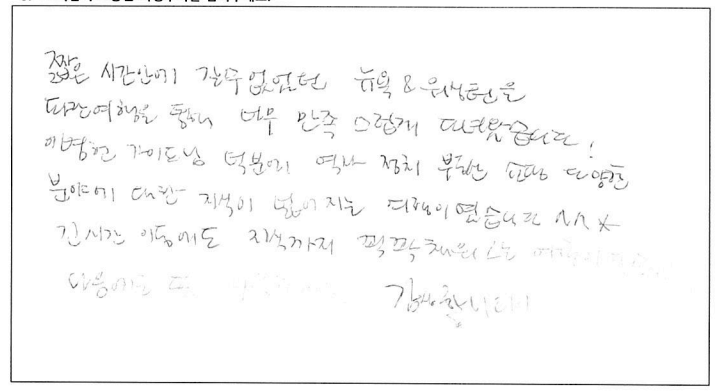 짧은 시간안에 갈수없었던 뉴욕 & 워싱턴을
여행을 통해 너무 만족스럽게 다녀왔습니다!
가이드님 덕분에 역사 정치 다양한
분야에 대한 지식이 넓어지는 여행이였습니다 ^^*
긴시간 이동에도 지식까지 꽉꽉채워
다음에는 또 감사합니다